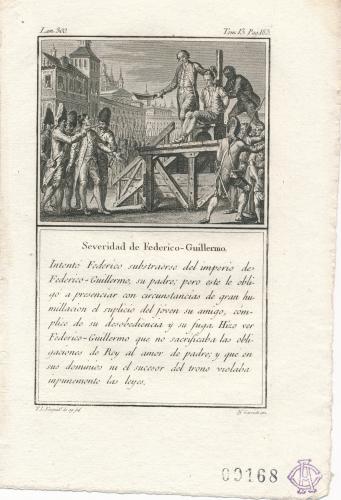 Lam. 300. Tom. 13. Pag. 183.
Severidad de Federico-Guillermo.
Intentó Federico substraerse del imperio de
Federico-Guillermo, su padre; pero este le obli-
go a presenciar con circunstancias de gran hu-
millacion el suplicio del joven su amigo, com-
plice de su desobediencia y su fuga. Hizo ver
Federico-Guillermo que no sacrificaba las obli-
gaciones de Rey al amor de padre; y que en
sus dominios ni el sucesor del trono violaba
impunemente las leyes.
00168